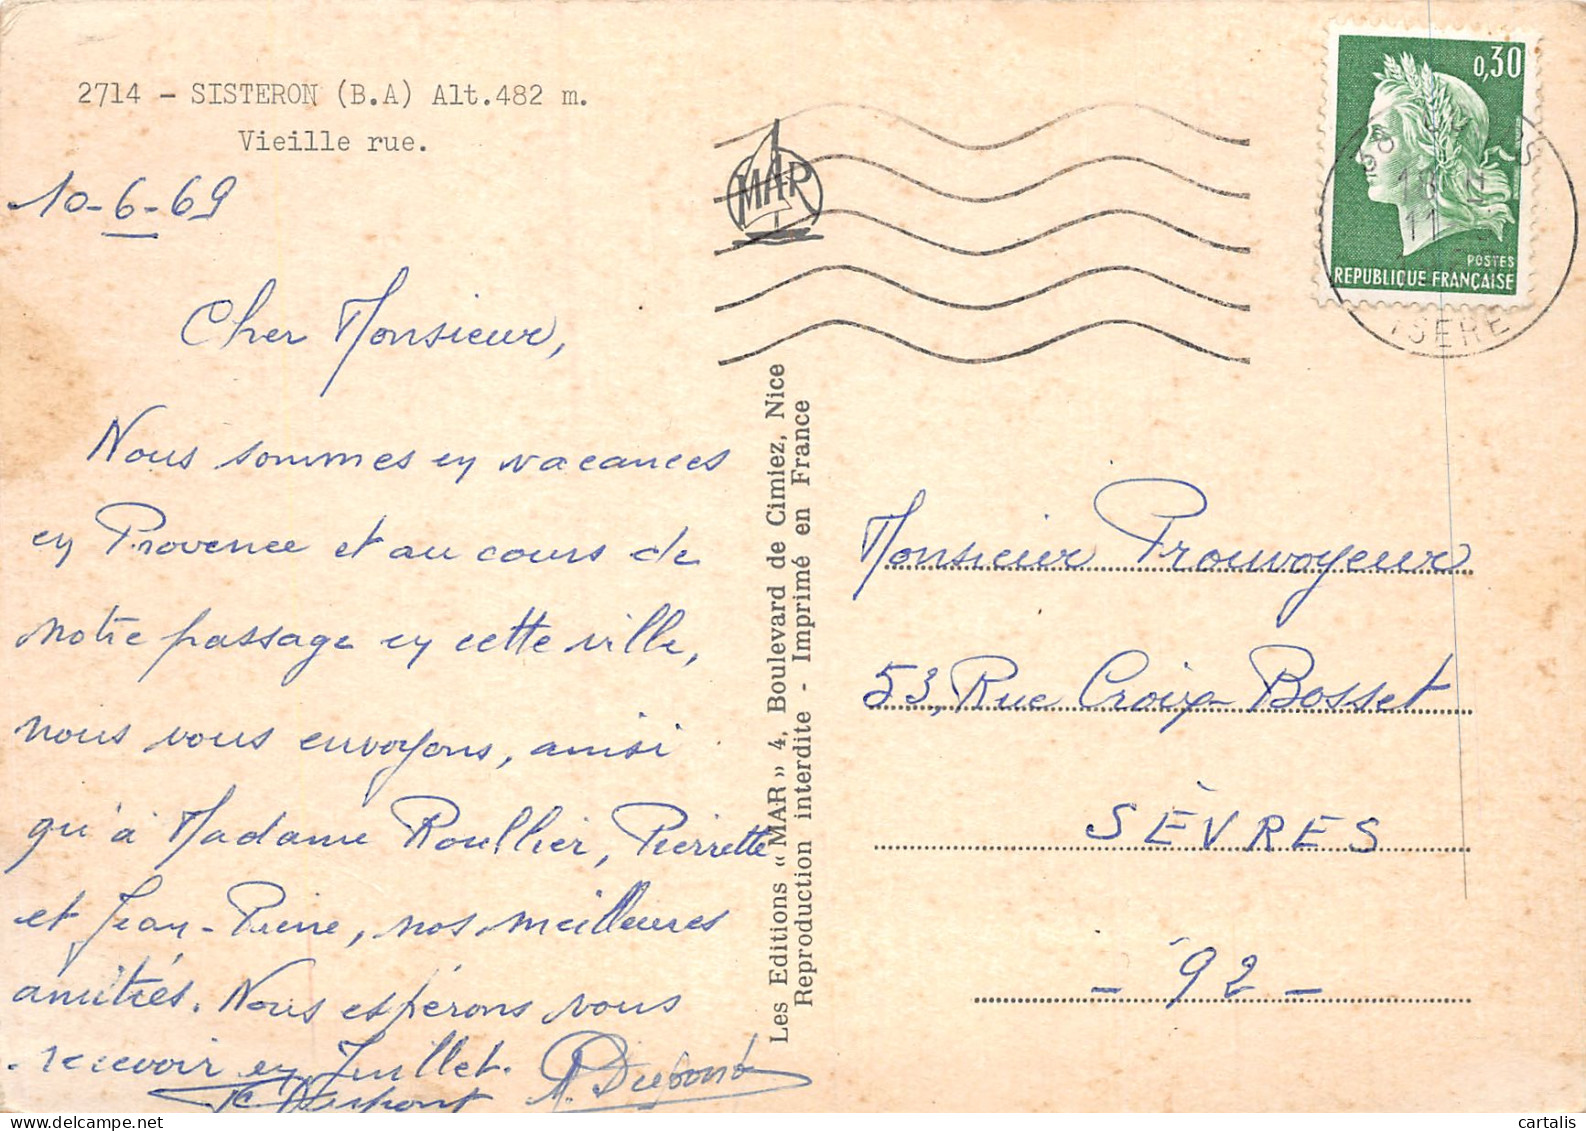 2714 - SISTERON (B.A) Alt.482 m.
Vieille rue.
10-6-69
Cher Monsieur,
Nous sommes en vacances
en Provence et au cours de
notre passage en cette ville,
nous vous envoyons, ainsi
qu'à Madame Roullier, Pierrette
et Jean-Pierre, nos meilleures
amitiés. Nous espérons vous
recevoir en Juillet.
MAR
Les Editions « MAR » 4, Boulevard de Cimiez, Nice
Reproduction interdite - Imprimé en France
0,30
POSTES
REPUBLIQUE FRANÇAISE
ISERE
Monsieur Prouvoyeur
53, Rue Croix-Bosset
SÈVRES
- 92 -
www.delcampe.net
cartalis